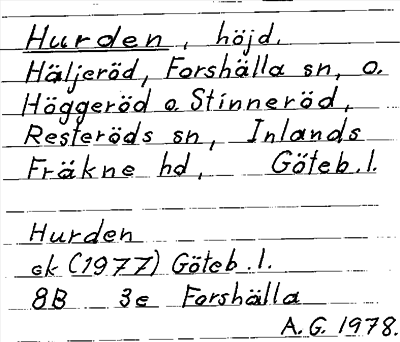 Hurden, höjd.
Häljeröd, Forshälla sn, o.
Höggeröd o. Stinneröd,
Resteröds sn, Inlands
Fräkne hd, Göteb.l.
Hurden
ek (1977) Göteb.l.
8B 3e Forshälla
A.G. 1978.